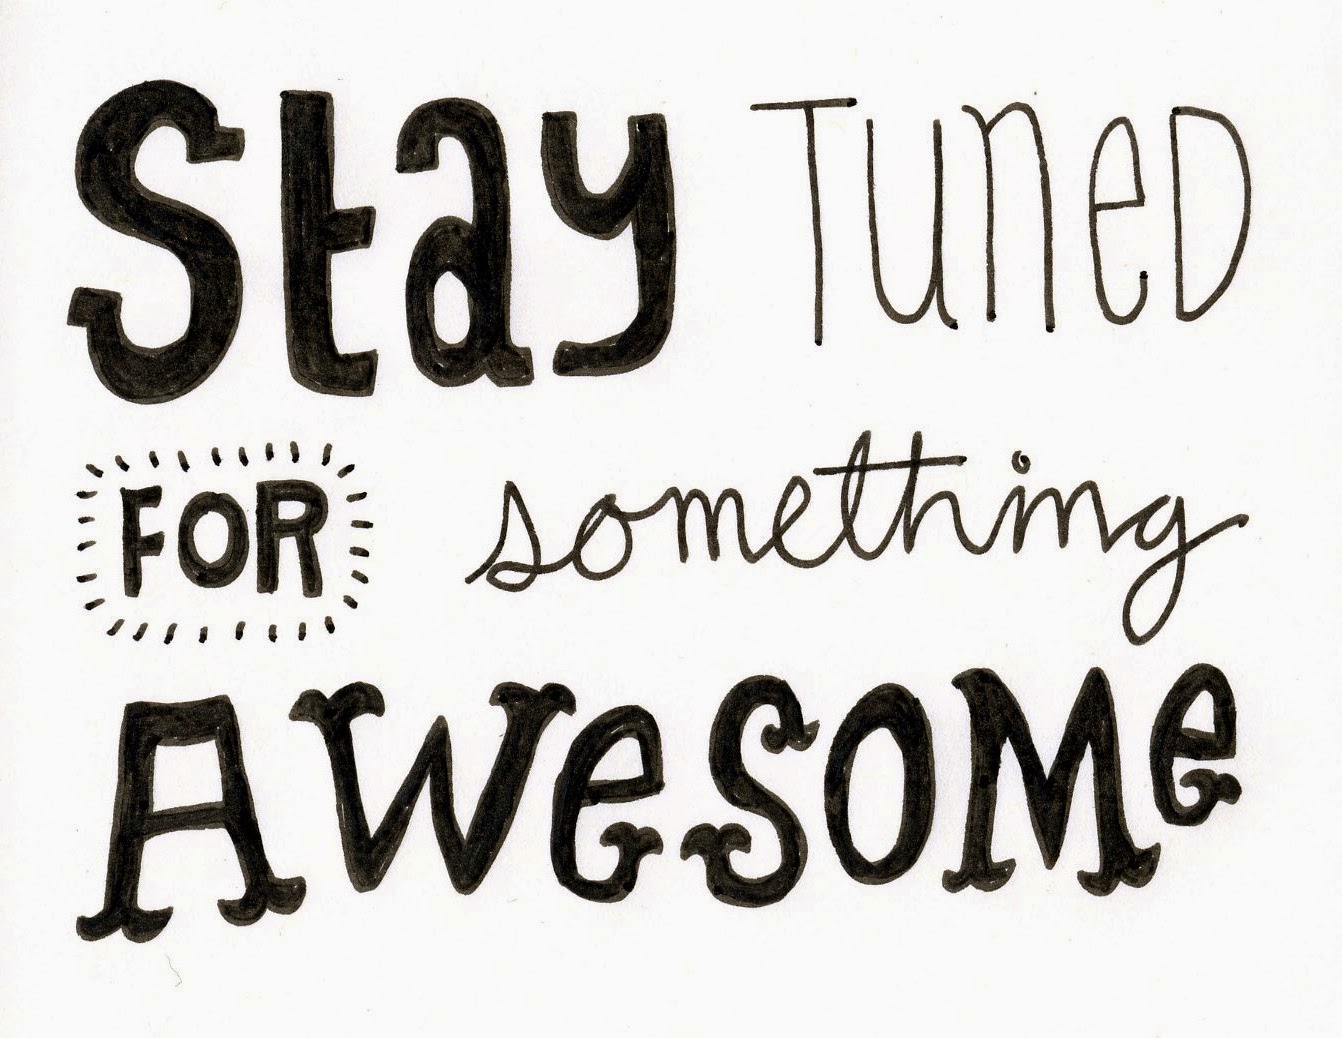 Stay TuneD
FOR something
AWeSOMe